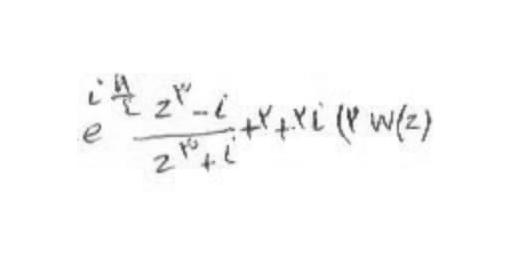 e^{i π/٤} (z^۳ - i)/(z^۳ + i) + ۲ + ۲i (۲ w(z)